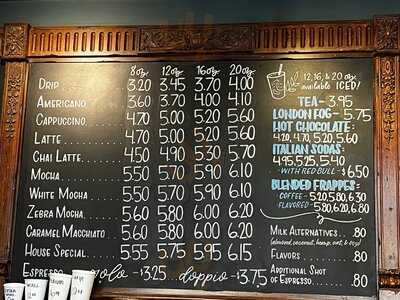 8oz. 12oz. 16oz. 20oz.
Drip 3.20 3.45 3.70 4.00
Americano 3.60 3.70 4.00 4.10
Cappuccino 4.70 5.00 5.20 5.60
Latte 4.70 5.00 5.20 5.60
Chai Latte 4.50 4.90 5.30 5.70
Mocha 5.50 5.70 5.90 6.10
White Mocha 5.50 5.70 5.90 6.10
Zebra Mocha 5.60 5.80 6.00 6.20
Caramel Macchiato 5.60 5.80 6.00 6.20
House Special 5.55 5.75 5.95 6.15
Espresso solo - 3.25 doppio - 3.75
12, 16, & 20 oz.
available ICED!
TEA - 3.95
LONDON FOG - 5.75
HOT CHOCOLATE:
4.20, 4.70, 5.20, 5.60
ITALIAN SODAS:
4.95, 5.25, 5.40
- WITH RED BULL - $6.50
BLENDED FRAPPES:
- COFFEE - 5.20, 5.80, 6.30
- FLAVORED - 5.80, 6.20, 6.80
Milk Alternatives .80
(almond, coconut, hemp, oat, & soy)
Flavors .80
Additional Shot
of Espresso .80